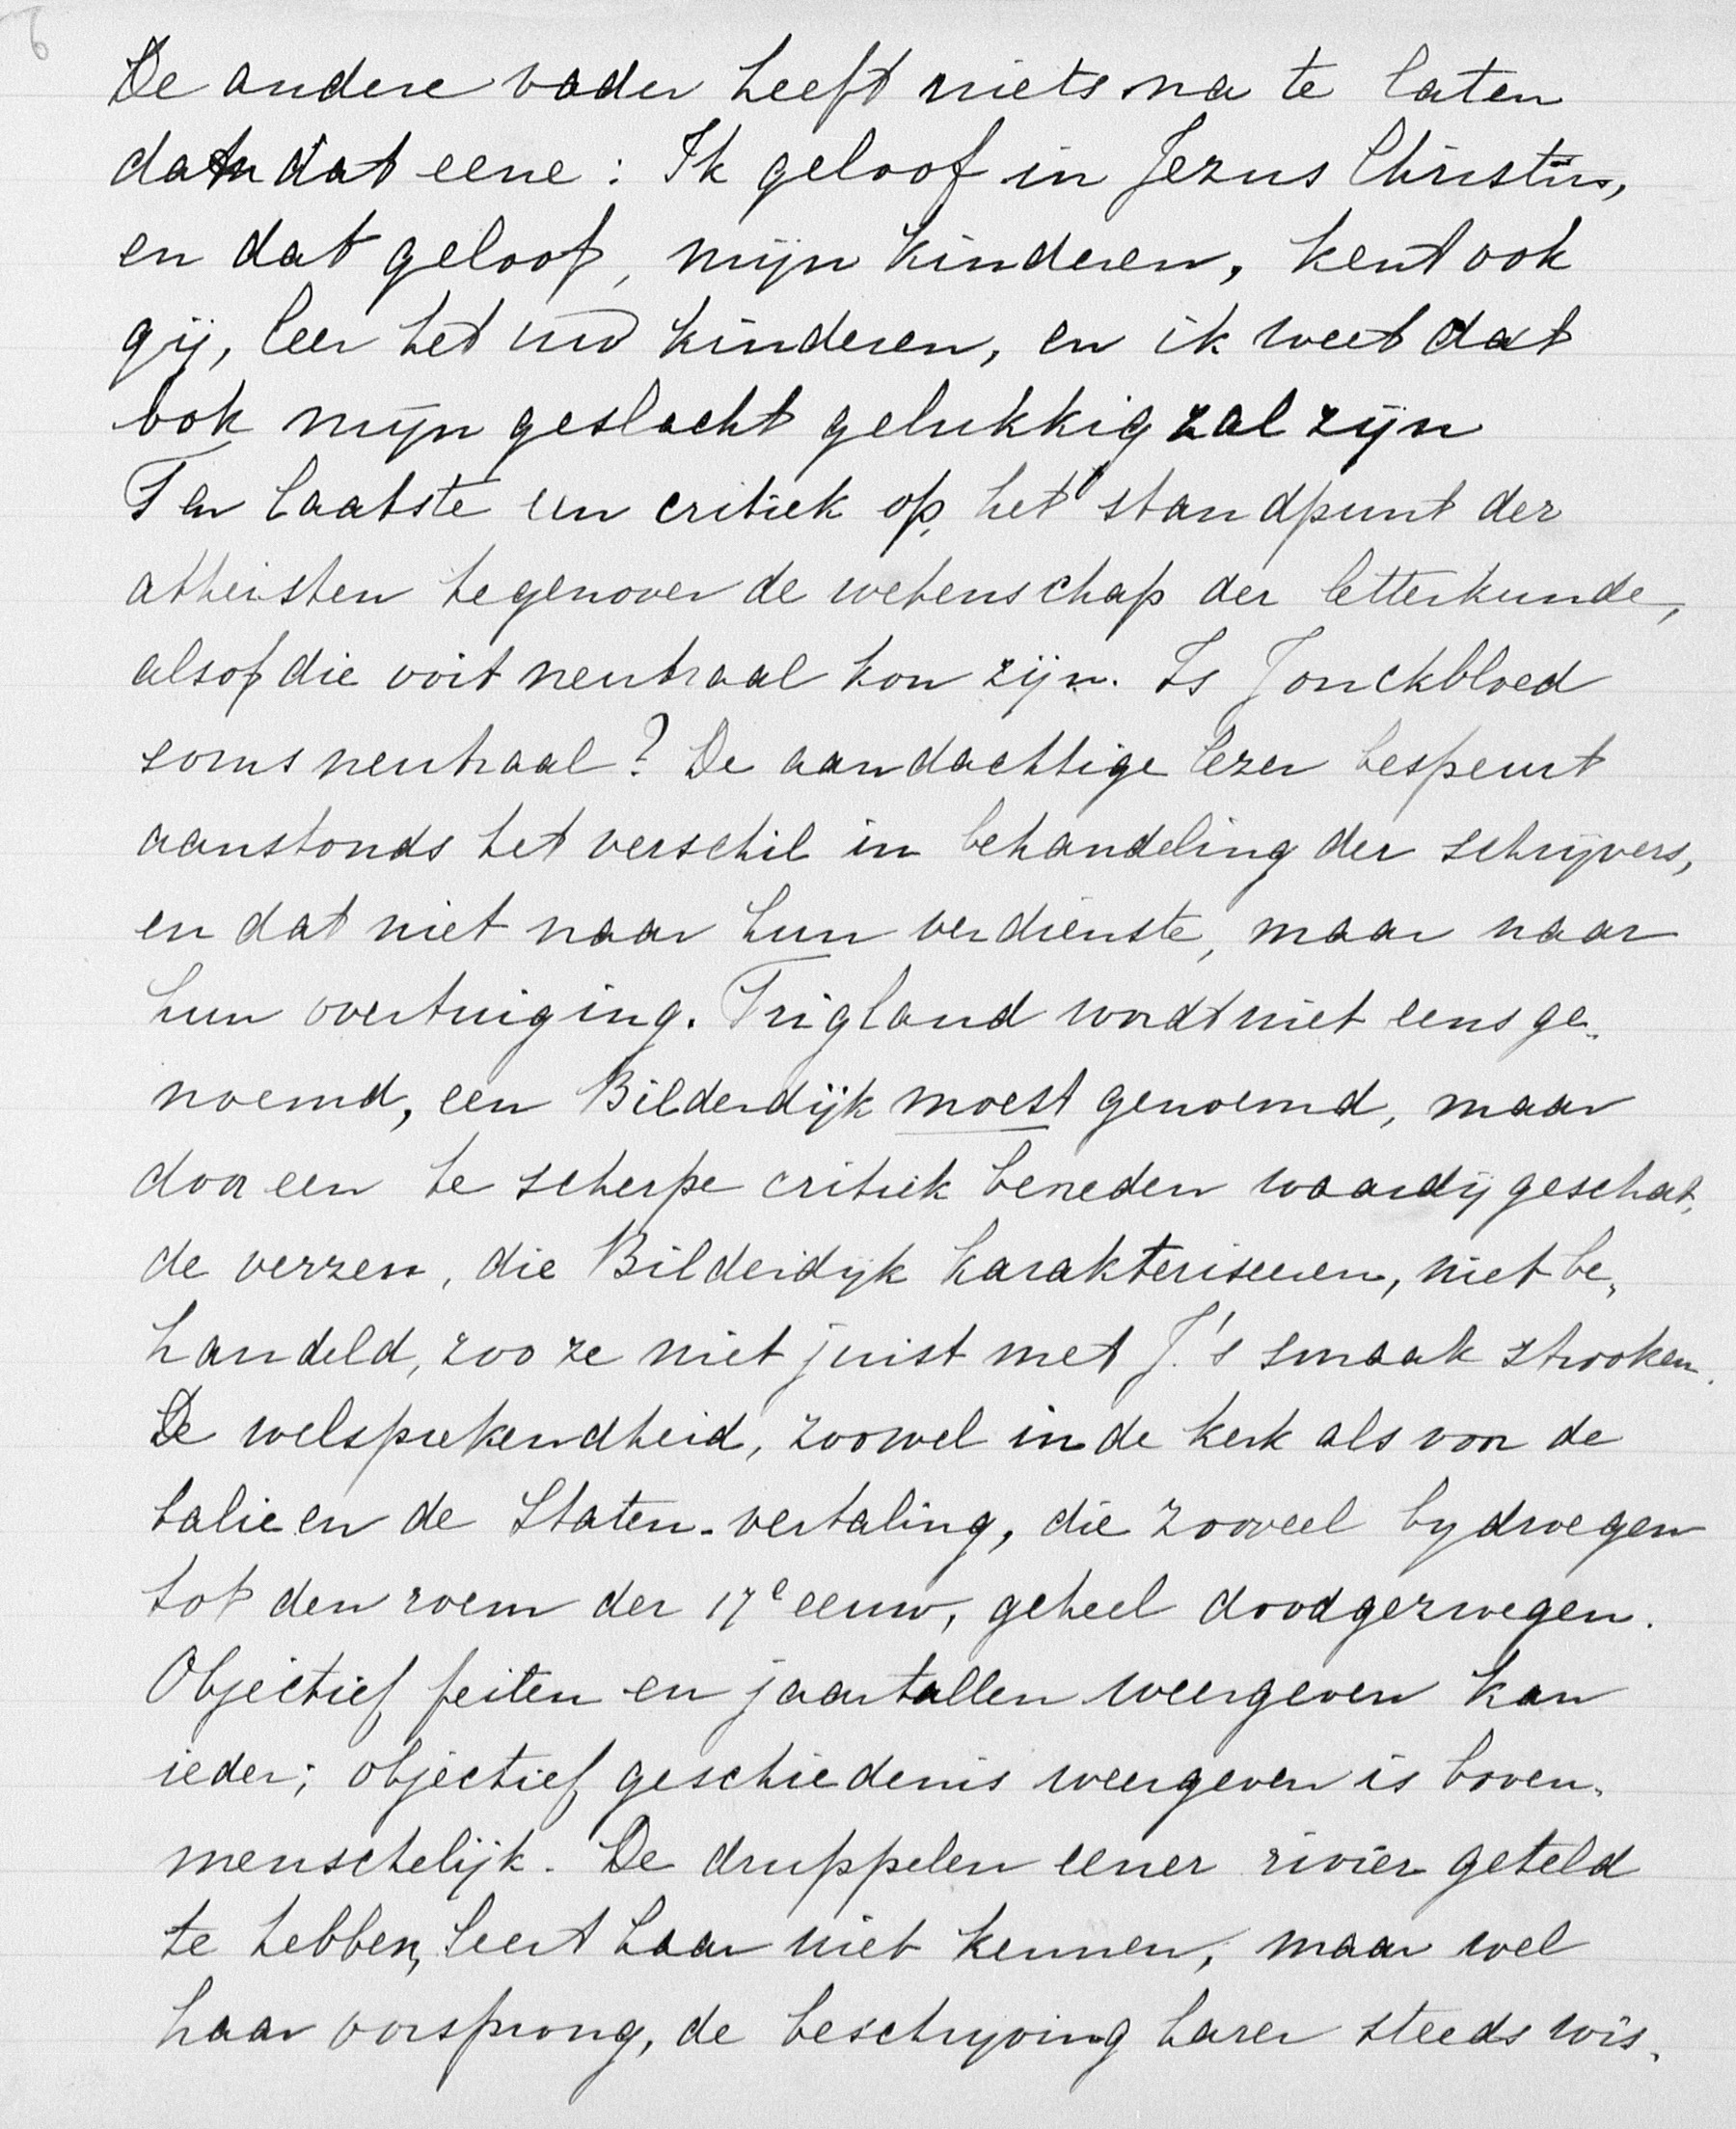 6
De andere vader heeft niets na te laten
dan dat eene: Ik geloof in Jezus Christus,
en dat geloof, mijn kinderen, kent ook
gij, leer het uw kinderen, en ik weet dat
ook mijn geslacht gelukkig zal zijn
Ten laatste een critiek op het standpunt der
atheisten tegenover de wetenschap der letterkunde,
alsof die ooit neutraal kon zijn. Is Jonckbloed
soms neutraal? De aandachtige lezer bespeurt
aanstonds het verschil in behandeling der schrijvers,
en dat niet naar hun verdienste, maar naar
hun overtuiging. Trigland wordt niet eens ge-
noemd, een Bilderdijk moest genoemd, maar
door een te scherpe critiek beneden waardij geschat,
de verzen, die Bilderdijk karakteriseeren, niet be-
handeld, zoo ze niet juist met J.'s smaak strooken.
De welsprekendheid, zoowel in de kerk als voor de
balie en de Staten-vertaling, die zooveel bydroegen
tot den roem der 17e eeuw, geheel doodgezwegen.
Objectief feiten en jaartallen weergeven kan
ieder; objectief geschiedenis weergeven is boven-
menschelijk. De druppelen eener rivier geteld
te hebben, leert haar niet kennen, maar wel
haar oorsprong, de beschryving harer steeds wis-